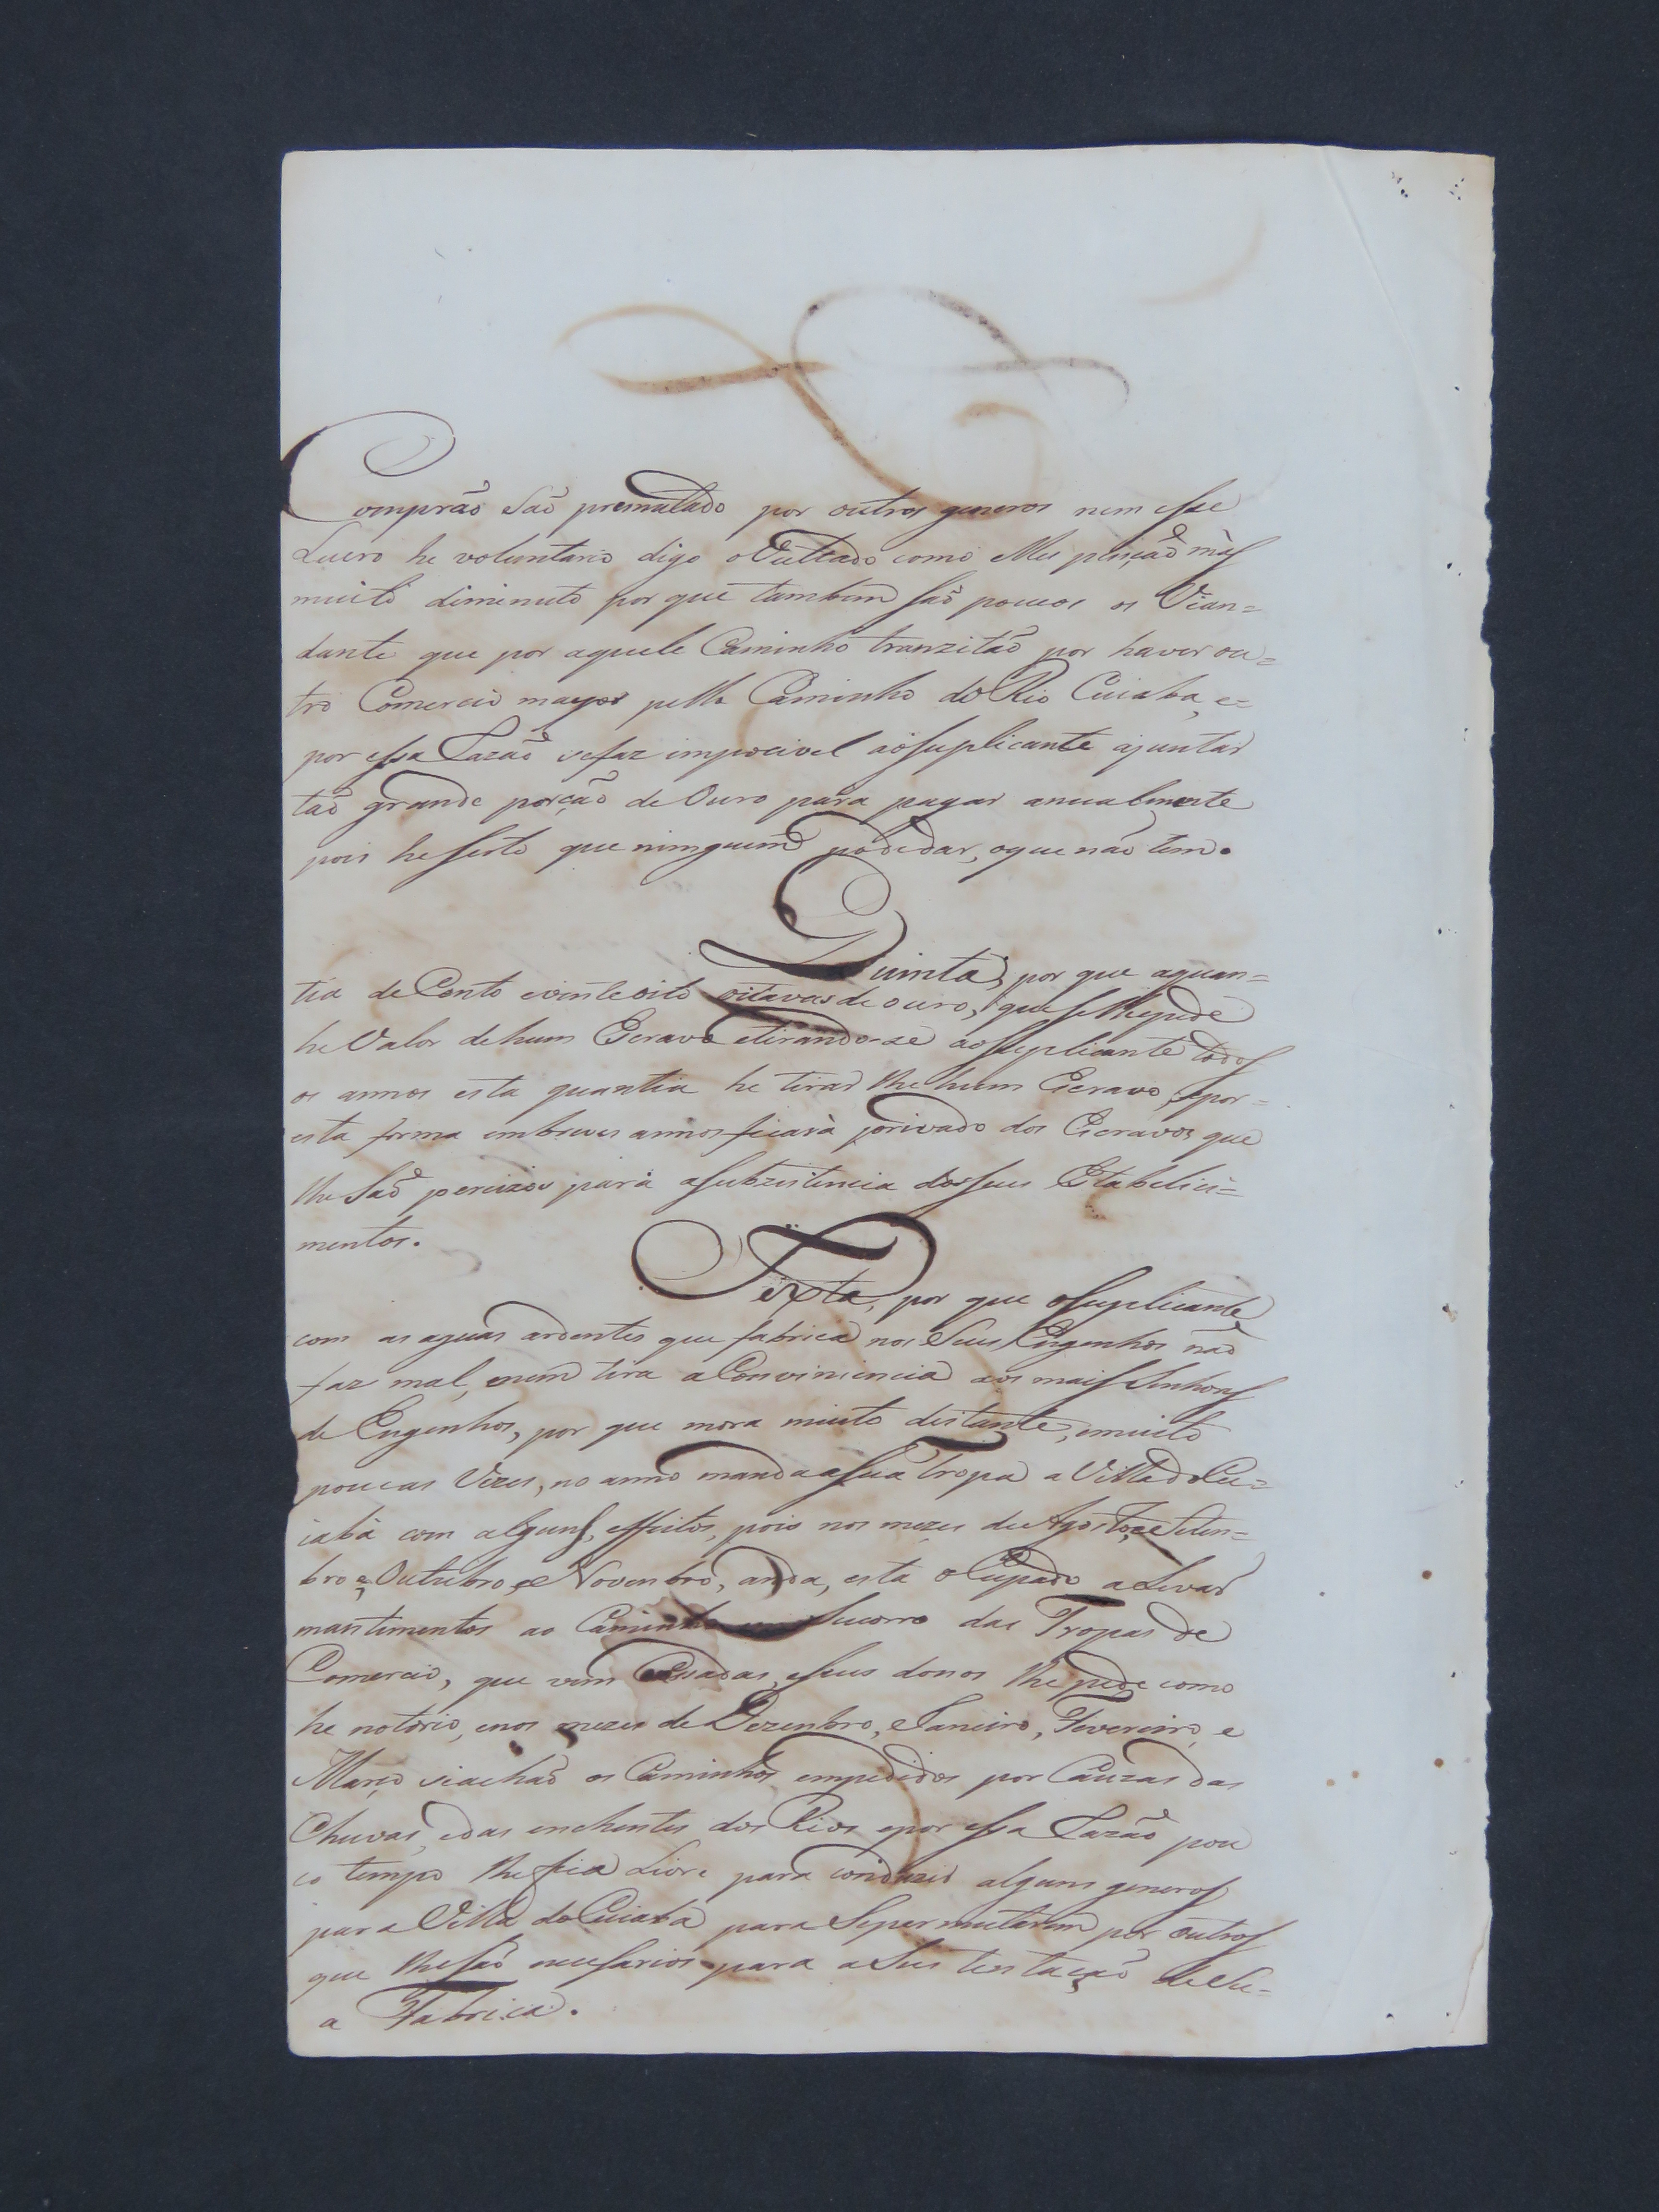 Comprão São premutado por outros generos nem esse
Lucro he voluntario digo o Vultado como Me's porção màs
muito diminuto por que tambem são poucos os Vian=
dante que por aquele Caminho tranzitão por haver ou=
tro Comercio mayor pello Caminho do Rio Cuiaba, e=
por essa Razão sefaz impocivel aosuplicante ajuntar
tão grande porção de Ouro para pagar anualmente
pois he serto que ninguem podedar, oque não tem.
Quinta, por que aquan=
tia de Cento evinteoito oitavas de ouro, que selhepede
he Valor dehum Escravo etirando-se aosuplicante todos
os annos esta quantia he tirar lhe hum Escravo, epor=
esta forma embreves annos ficarà privado dos Escravos que
lhe São percizos para asubzistencia dosseus Estabelici=
mentos.
Sexta, por que osuplicante
com as aguas ardentes que fabrica nos Seus Engenhos não
faz mal, enem tira aConviniencia aos mais Senhores
de Engenhos, por que mora muito distante, emuito
poucas Vezes, no anno manda asua tropa a Villa do Cu=
iabà com alguns, effeitos, pois nos mezes de Agosto, e Setem=
bro e Outubro, e Novembro, anda, esta oCupado aLevar
mantimentos ao Caminho em Sucorro das Tropas de
Comercio, que vem Cansadas, eseus donos lhe pede como
he notorio, enos mezes de Dezembro, eJaneiro, Fevereiro, e
Março seachão os Caminhos empedidos por Cauzas das
Chuvas, edas enchentes dos Rios epor essa Razão pou
co tempo lhe fica Livre para conduzir alguns generos
para Villa do Cuiaba para Sepermutarem por outros
que lhesão nesesarios para aSustentação deSu=
a Fabrica.